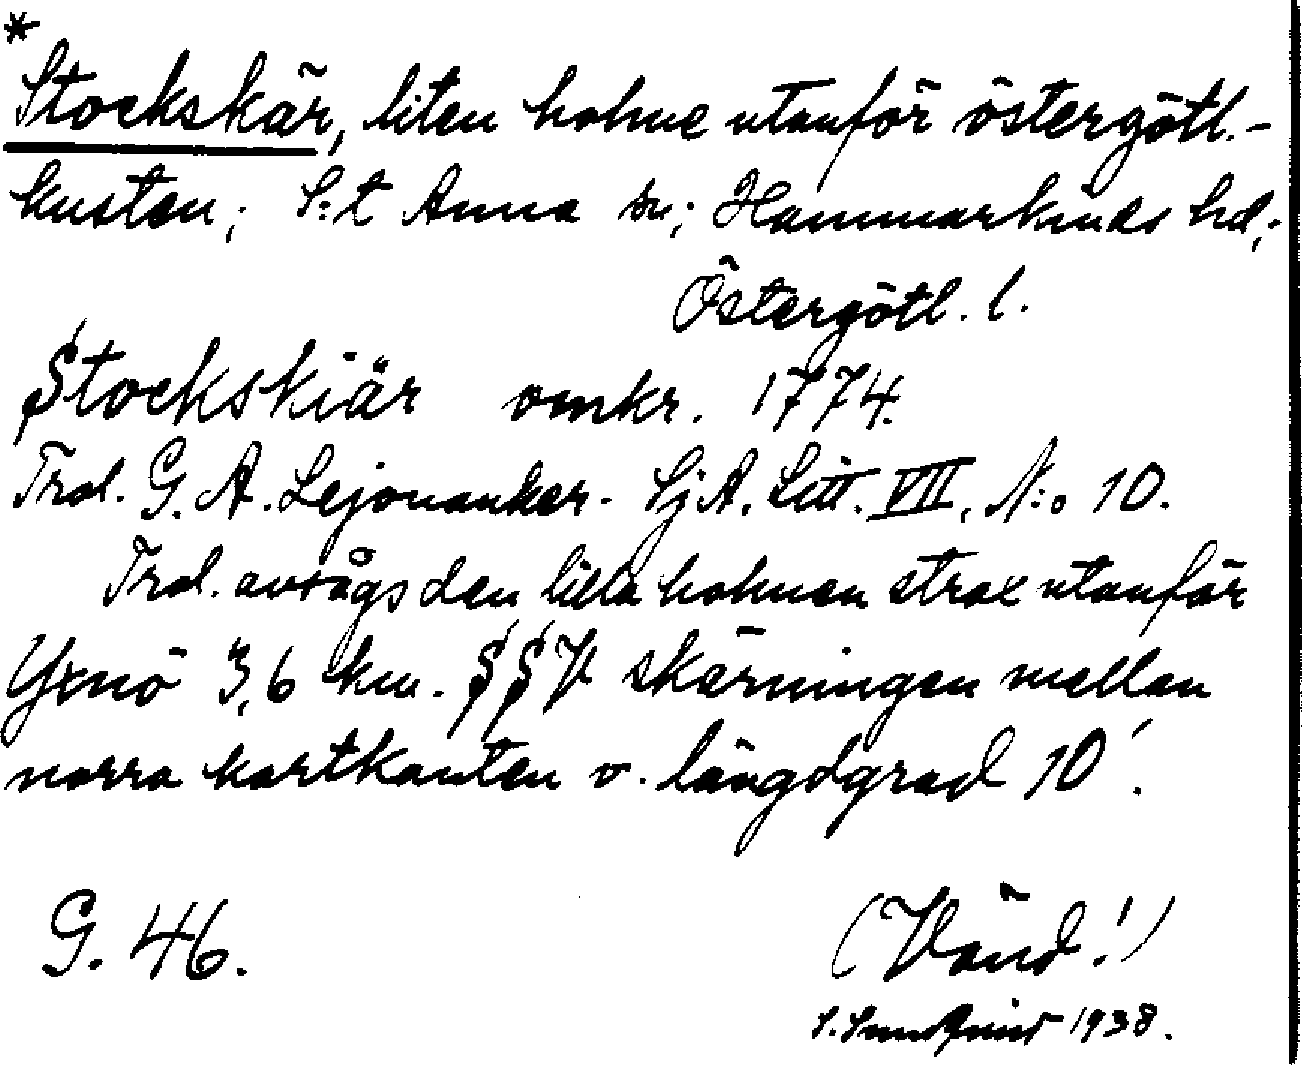 *
Stockskär, liten holme utanför östergötl.-
kusten; S:t Anna sn; Hammarkinds hd,;
Östergötl. l.
Stockskiär omkr. 1774.
Trol. G. A. Lejonanker. SjA. Litt. VII, N:o 10.
Trol. avsågs den lilla holmen strax utanför
Yxnö 3,6 km. SSV skärningen mellan
norra kartkanten o. längdgrad 10'.
G. 46.
(Vänd!)
S. 1938.